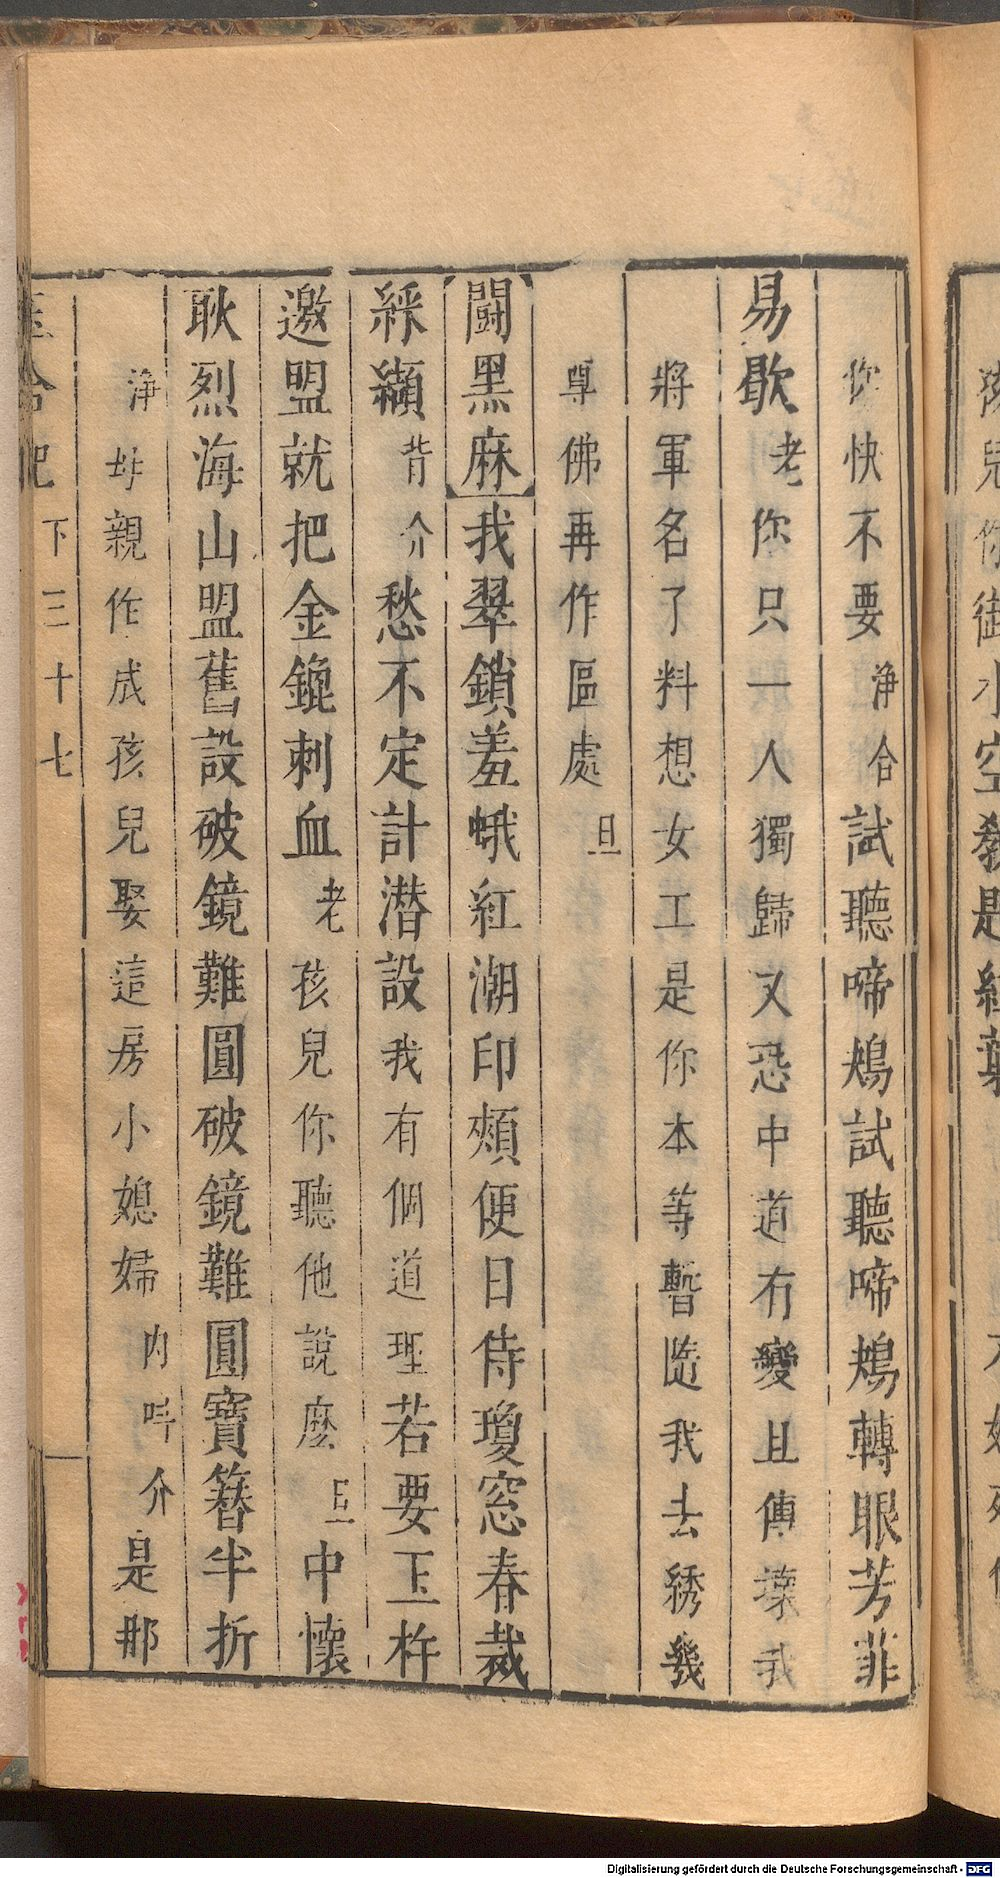 你快不要淨合試聽啼鴂試聽啼鴂轉眼芳菲
易歇老你只一人獨歸又恐中道有變且傳
將軍名了料想女工是你本等暫隨我去綉幾
尊佛再作區處旦
闘黑麻我翠鎖羞蛾紅潮印頰便日侍瓊窓春裁
綵纈背介愁不定計潜設我有個道理若要玉杵
邀盟就把金鎞刺血老孩兒你聽他說麽旦中懷
耿烈海山盟舊設破鏡難圓破鏡難圓寶簪半折
淨母親作成孩兒娶這房小媳婦内呌介是那
玉合記 下三十七
Digitalisierung gefördert durch die Deutsche Forschungsgemeinschaft - DFG